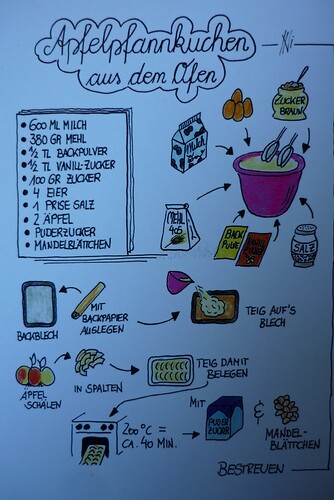 Apfelpfannkuchen
aus dem Ofen
• 600 ML MILCH
• 380 GR MEHL
• ½ TL BACKPULVER
• ½ TL VANILL-ZUCKER
• 100 GR ZUCKER
• 4 EIER
• 1 PRISE SALZ
• 2 ÄPFEL
• PUDERZUCKER
• MANDELBLÄTTCHEN
ZUCKER
BRAUN
Milch
MEHL
405
BACK
PULVE
SALZ
BACKBLECH
MIT
BACKPAPIER
AUSLEGEN
TEIG AUF'S
BLECH
ÄPFEL
SCHÄLEN
IN SPALTEN
TEIG DAMIT
BELEGEN
200°C =
CA. 40 MIN.
MIT
PUDER
ZUCKER
&
MANDEL-
BLÄTTCHEN
BESTREUEN